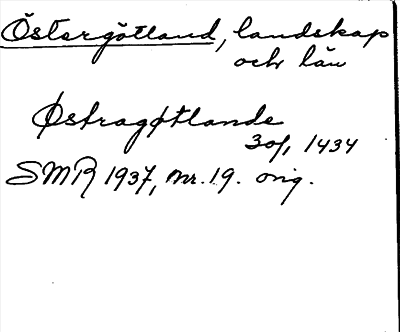 Östergötland, landskap
och län
Østragøtlande
30/1 1434
SMR 1937, nr. 19. orig.